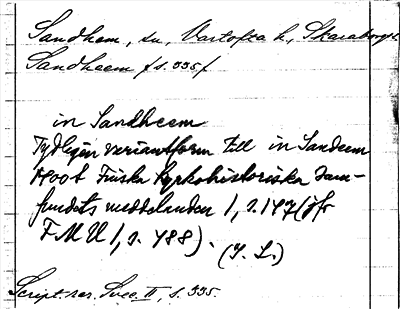 Sandhem, sn, Vartofta h., Skaraborgs
Sandheem f s. 335 f
in Sandheem
Tydligen variantform till in Sandeem
1400 t Finska Kyrkohistoriska Sam-
fundets meddelanden 1, s. 147 (jfr
F M U 1, s. 488). (I. L.)
Script. rer. Svec. II, s. 335.